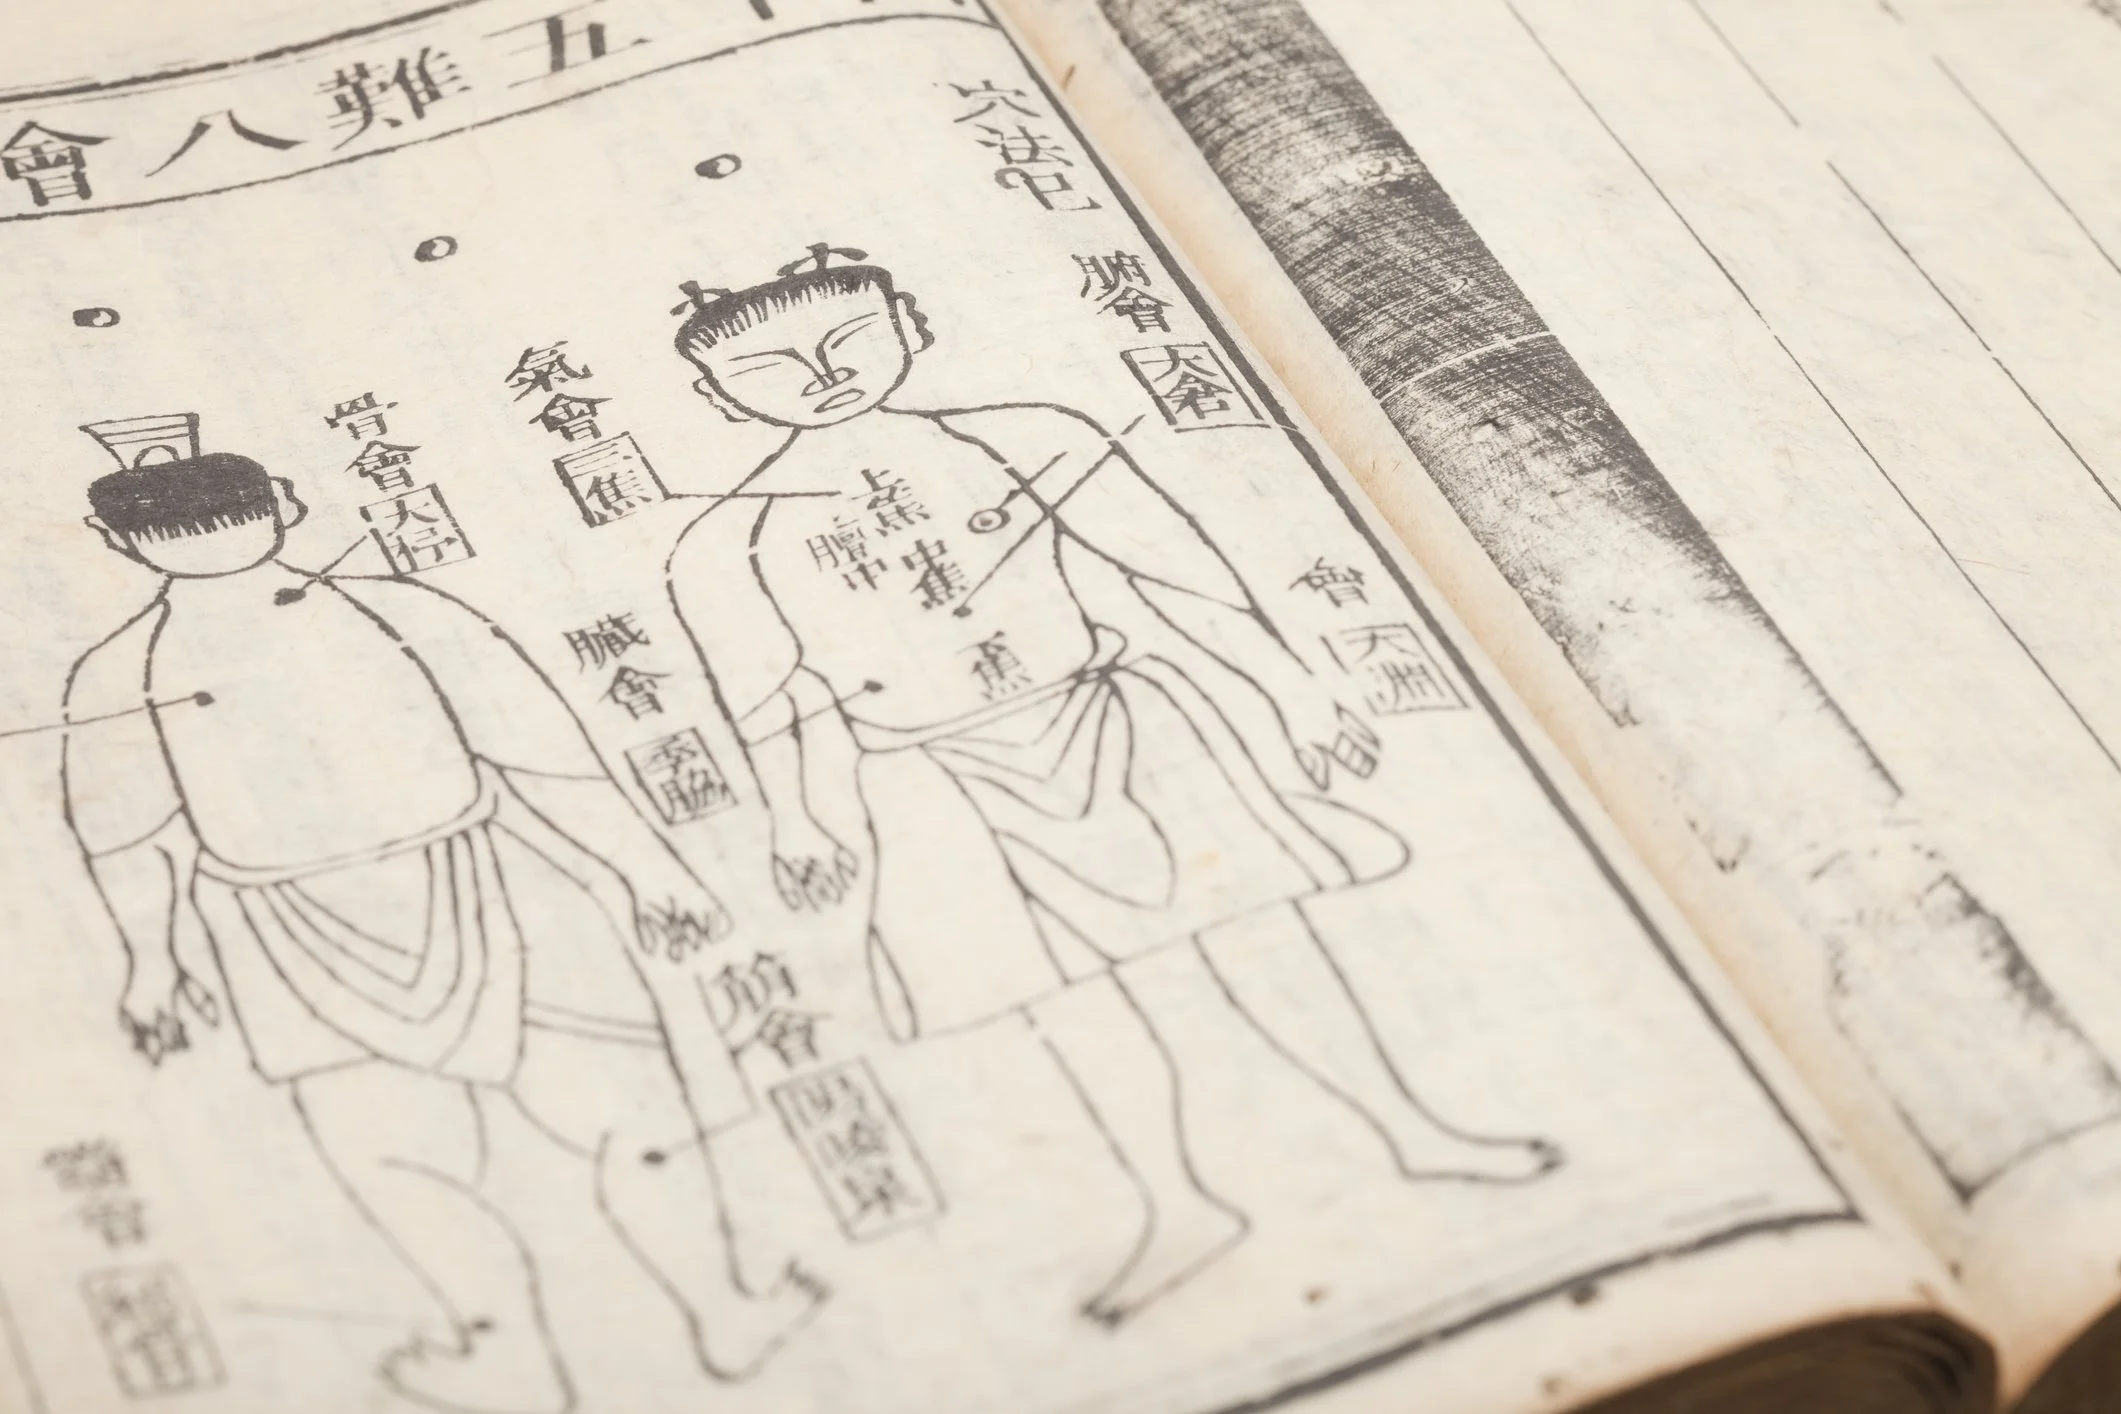 五難八會
穴法
腑會
大倉
會
大淵
上焦
膻中
中焦
下焦
氣會
三焦
臟會
季脇
骨會
大杼
筋會
陽陵泉